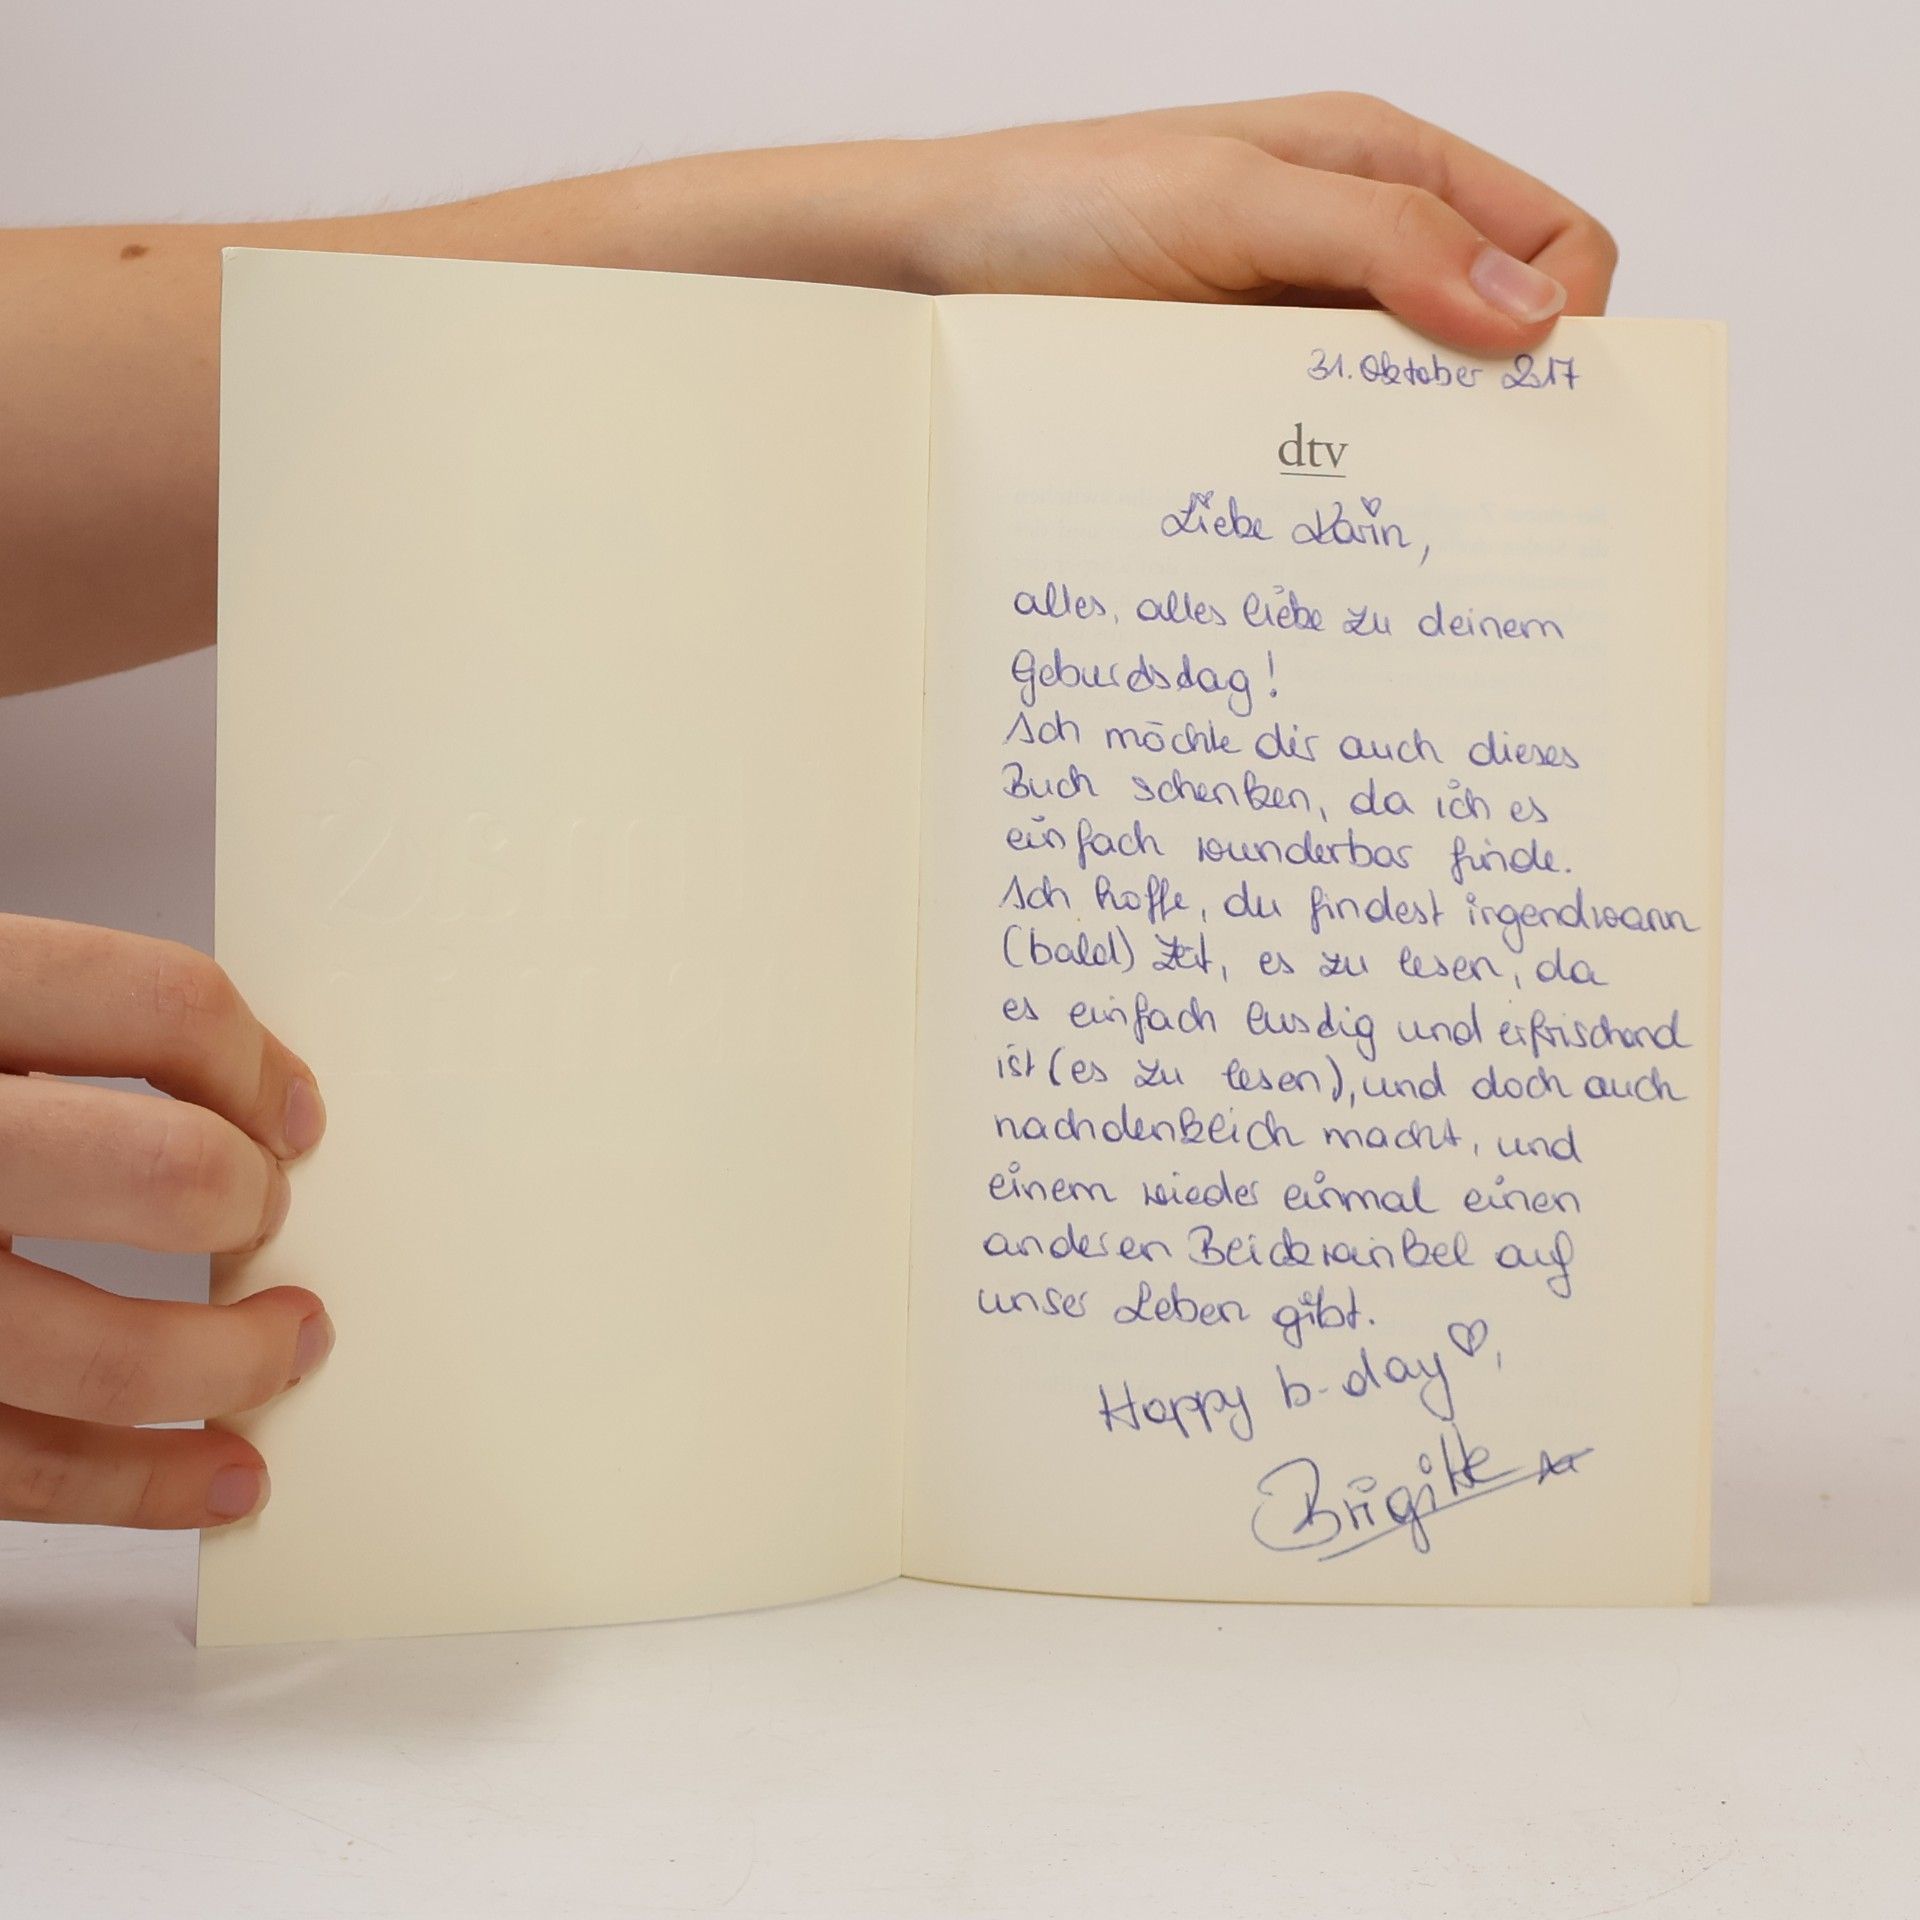 31. Oktober 2017
dtv
Liebe Karin,
alles, alles liebe zu deinem
Geburdsdag!
Ich möchte dir auch dieses
Buch schenken, da ich es
einfach wunderbar finde.
Ich hoffe, du findest irgendwann
(bald) Zeit, es zu lesen, da
es einfach lusdig und erfrischend
ist (es zu lesen), und doch auch
nachdenklich macht, und
einem wieder einmal einen
anderen Blickwinkel auf
unser Leben gibt.
Happy b-day ♡,
Brigitte